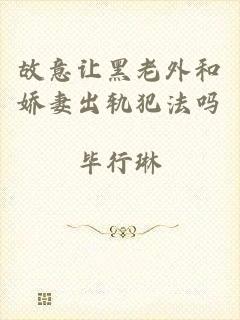 故意让黑老外和
娇妻出轨犯法吗
毕行琳